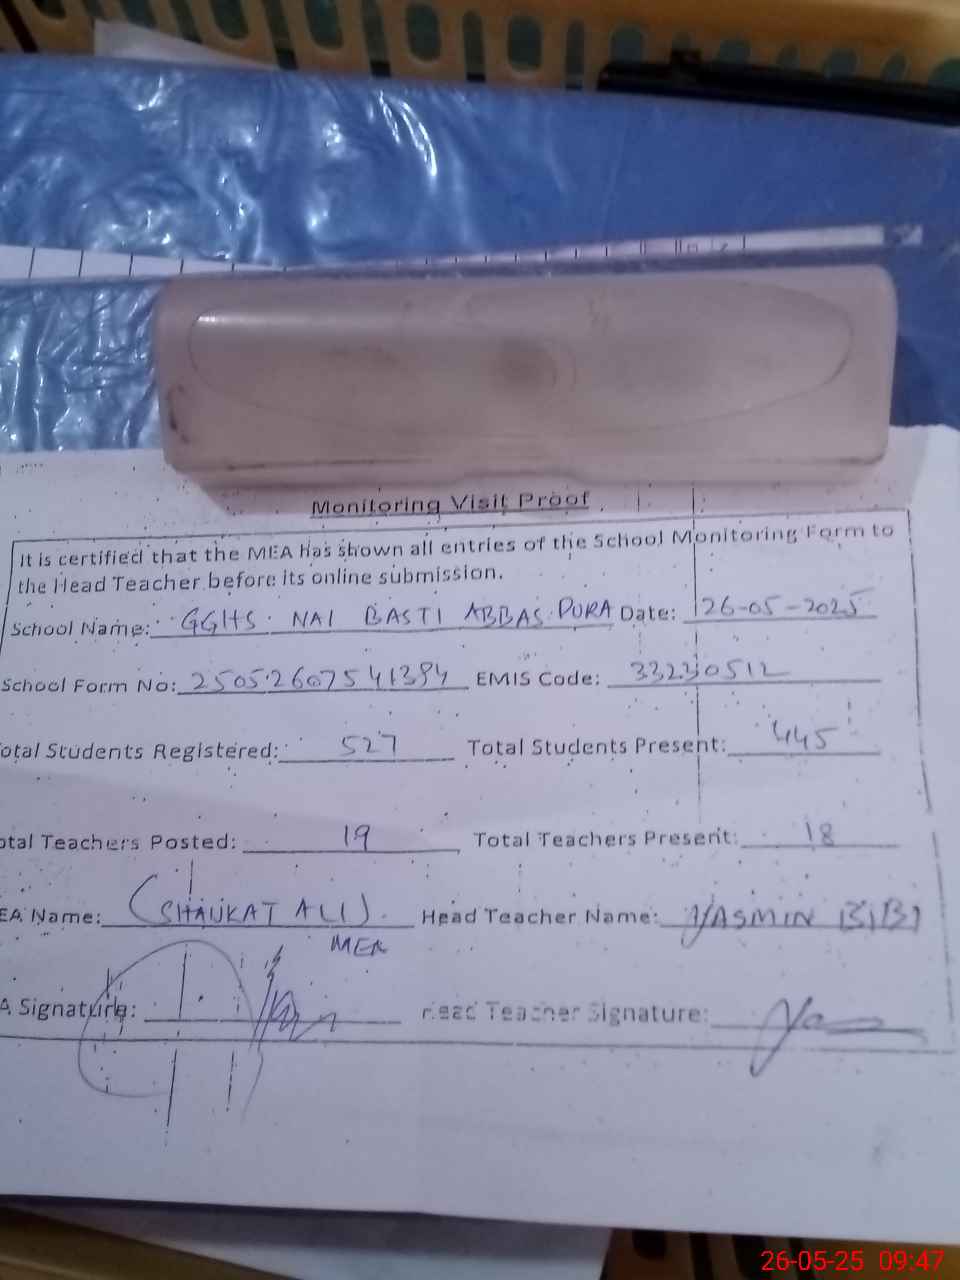 Monitoring Visit Proof
It is certified that the MEA has shown all entries of the School Monitoring Form to
the Head Teacher before its online submission.
School Name: GGHS. NAI BASTI ABBAS PURA Date: 26-05-2025
School Form No: 25052607541394 EMIS Code: 33230512
otal Students Registered: 527 Total Students Present: 445
otal Teachers Posted: 19 Total Teachers Present: 18
EA Name: (SHAUKAT ALI) Head Teacher Name: YASMIN BIBI
MEA
A Signature: Head Teacher Signature:
26-05-25 09:47